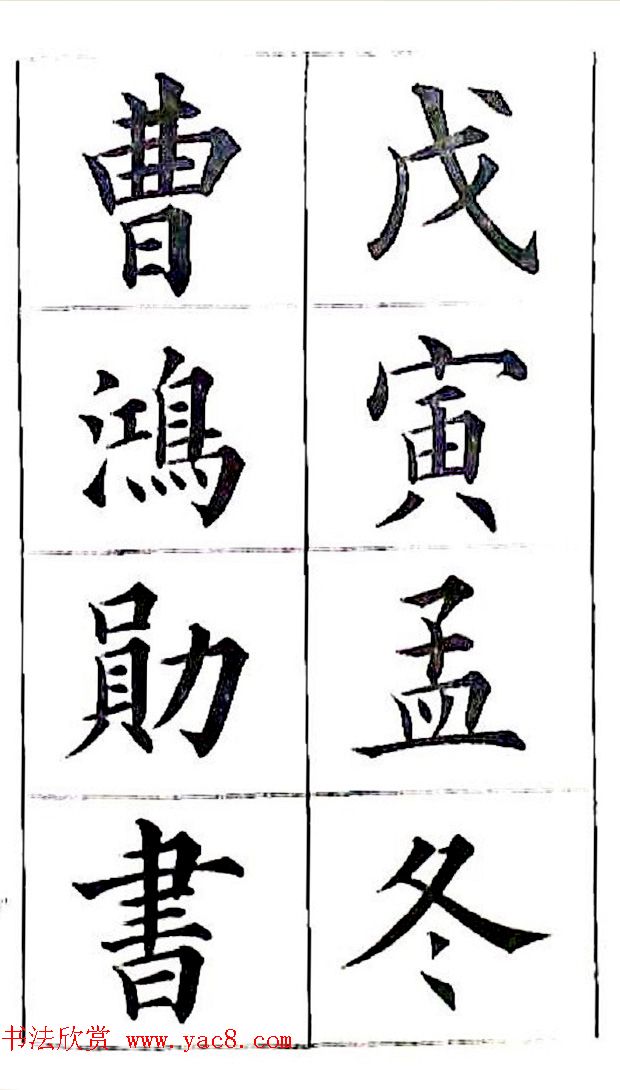 戊寅孟冬
曹鴻勛書
书法欣赏 www.yac8.com